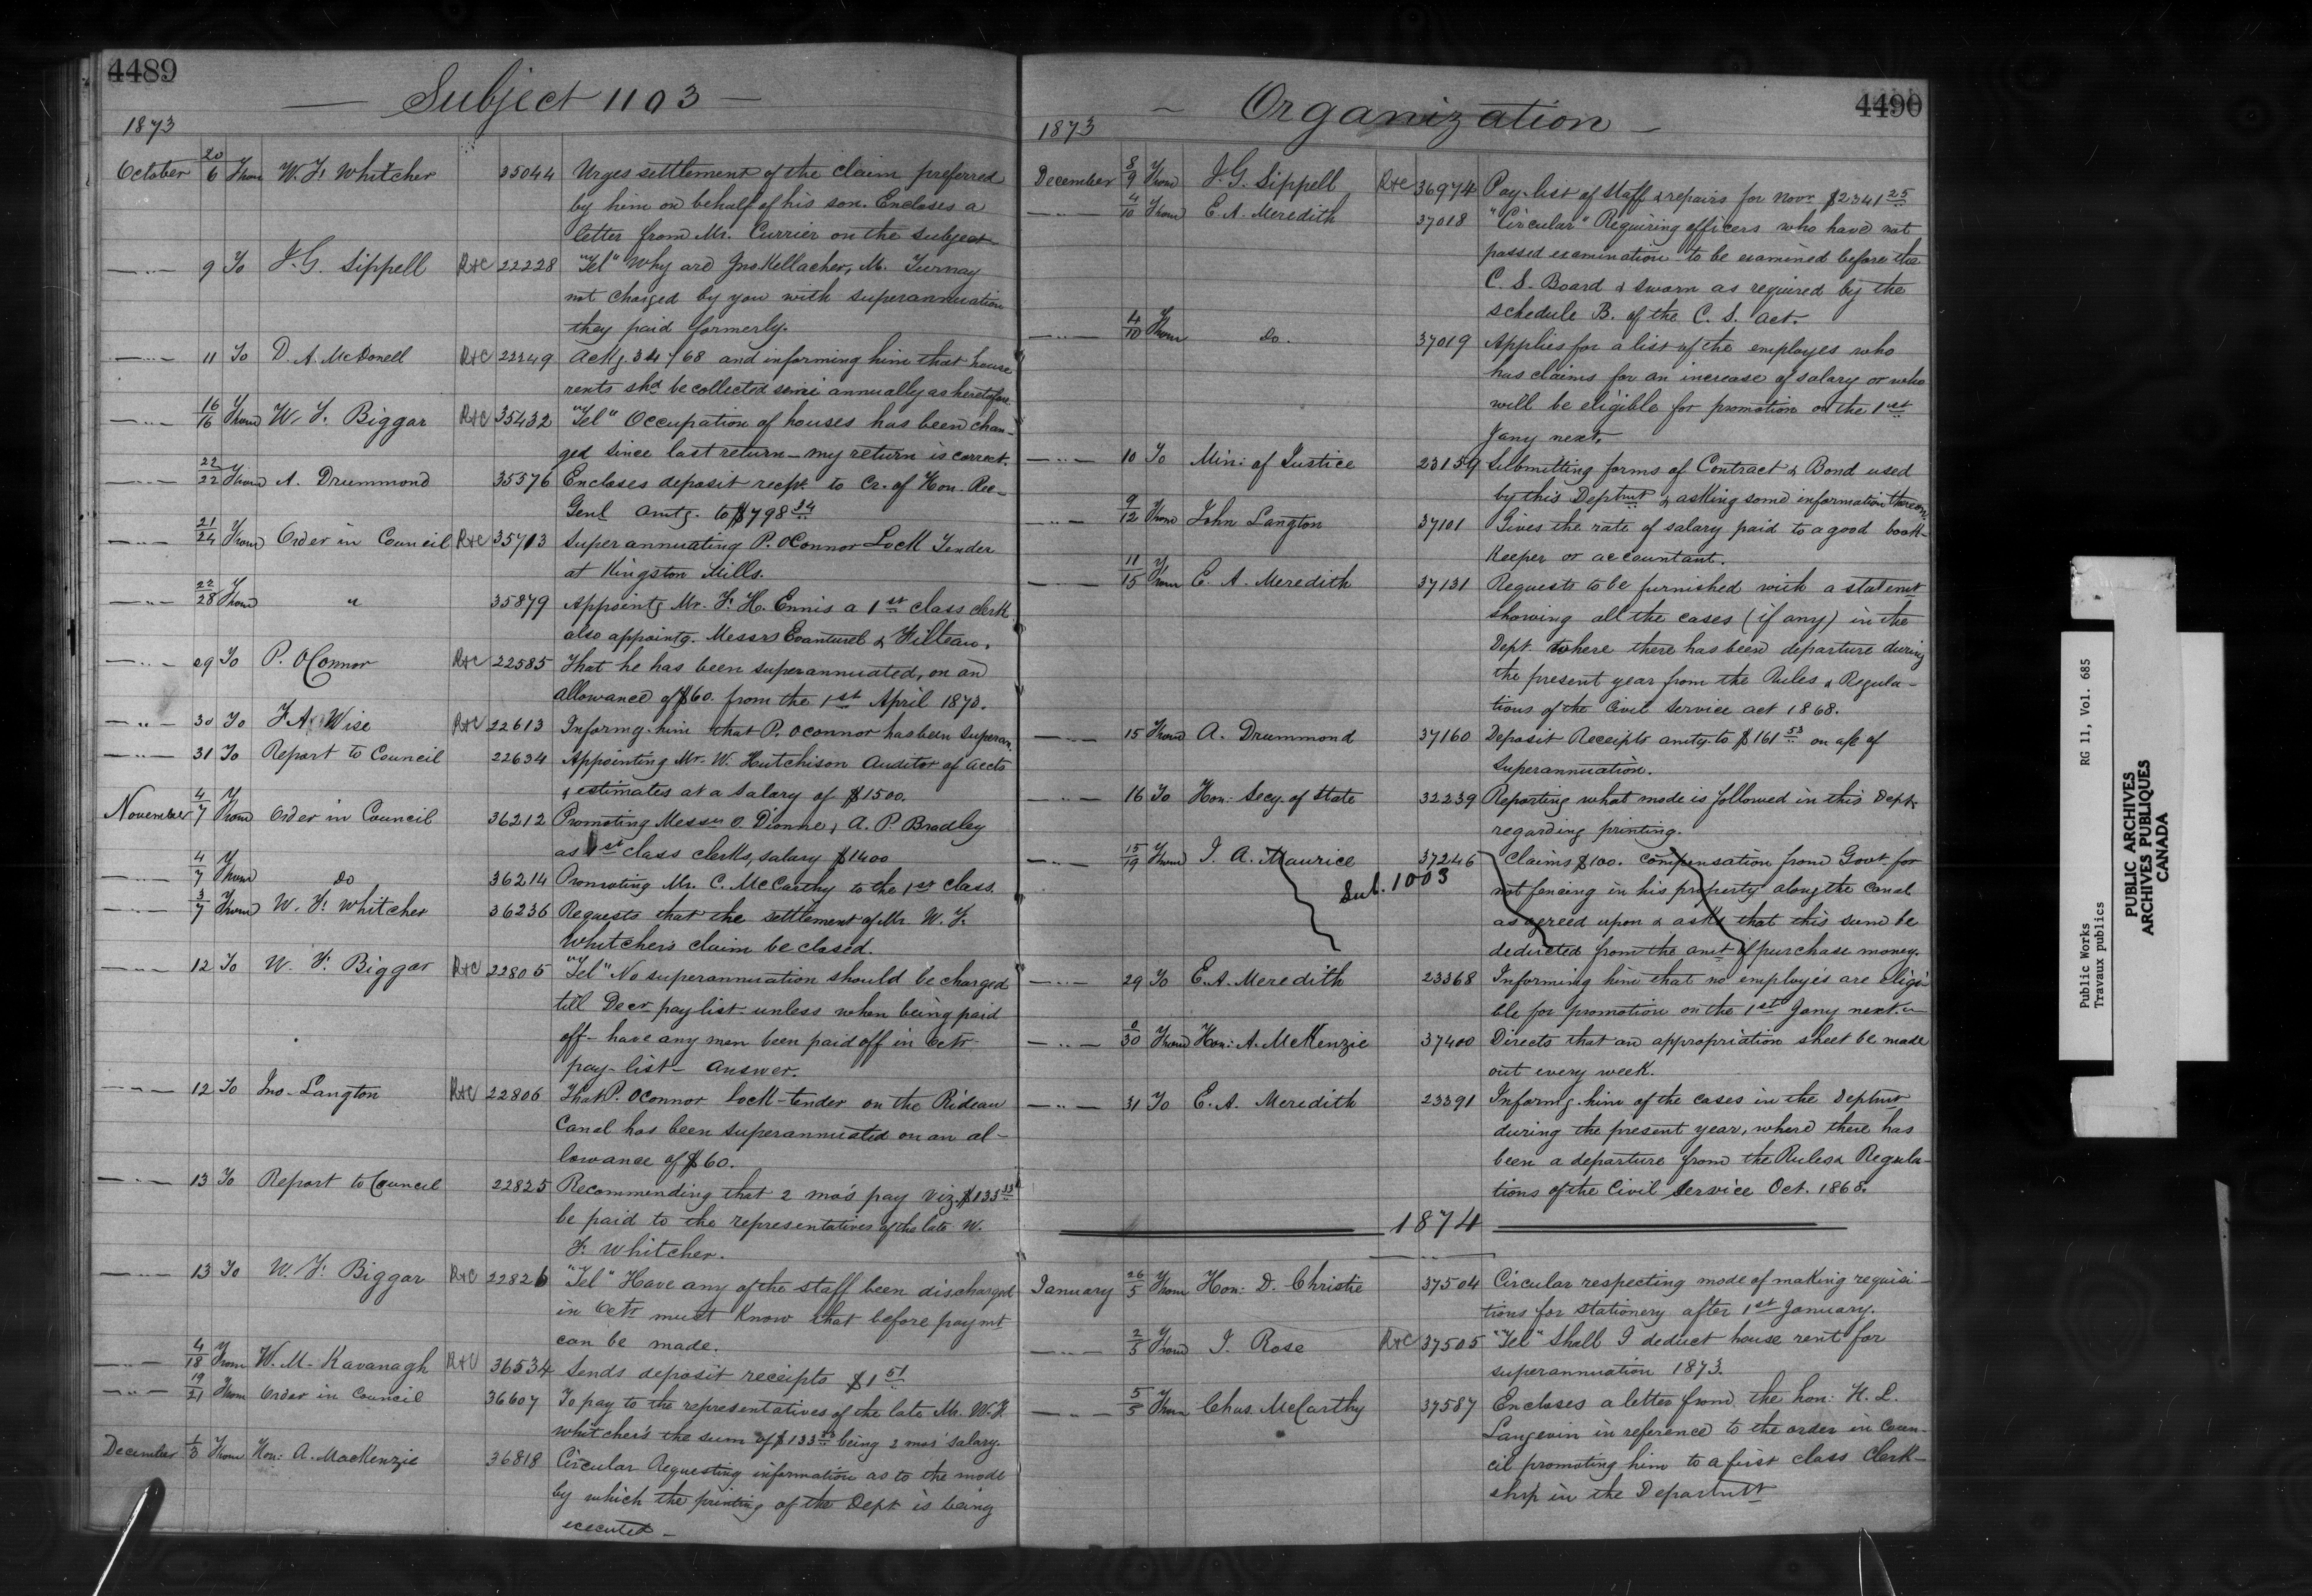 4489
Subject 1103
1873
October 20/6 From W. F. Whitcher 35044 Urges settlement of the claim preferred
by him on behalf of his son. Encloses a
letter from Mr. Currier on the subject
9 To J. G. Sippell R+C 22228 "Tel" Why are Jno Kellacher, M. Turnay
not charged by you with superannuation
they paid formerly.
11 To D. A. McDonell R+C 22349 Ackg. 34768 and informing him that house
rents shd be collected semi annually as heretofore.
16/16 From W. F. Biggar R+C 35432 "Tel" Occupation of houses has been chan-
ged since last return - my return is correct.
22/22 From A. Drummond 35576 Encloses deposit recpt. to Cr. of Hon. Rec-
Genl amtg. to $798 34
21/24 From Order in Council R+C 35713 Superannuating P. OConnor Lock Tender
at Kingston Mills.
22/28 From " 35879 Appointg Mr. F. H. Ennis a 1st class clerk
also appointg. Messrs Evanturel & Filteau.
29 To P. OConnor R+C 22585 That he has been superannuated, on an
allowance of $60. from the 1st April 1873.
30 To F. A. Wise R+C 22613 Informg. him that P. OConnor has been Superan.
31 To Report to Council 22634 Appointing Mr. W. Hutchison Auditor of accts
& estimates at a salary of $1500.
November 4/7 From Order in Council 36212 Promoting Messrs O. Dionne & A. P. Bradley
as 1st class clerks, salary $1400
4/7 From do 36214 Promoting Mr. C. McCarthy to the 1st Class.
3/7 From W. F. Whitcher 36236 Requests that the settlement of Mr. W. F.
Whitcher's claim be closed.
12 To W. F. Biggar R+C 22805 "Tel" No superannuation should be charged
till Decr pay list unless when being paid
off - have any men been paid off in Octr
pay-list - Answer.
12 To Jno. Langton R+C 22806 That P. OConnor lock-tender on the Rideau
Canal has been superannuated on an al-
lowance of $60.
13 To Report to Council 22825 Recommending that 2 mo's pay viz. $133 33
be paid to the representatives of the late W.
F. Whitcher.
13 To W. F. Biggar R+C 22826 "Tel" Have any of the staff been discharged
in Octr must know that before paymt
can be made.
4/18 From W. M. Kavanagh R+C 36534 Sends deposit receipts $1 51
19/21 From Order in Council 36607 To pay to the representatives of the late Mr. W. F.
Whitcher's the sum of $133 33 being 2 mos' salary.
December 1/3 From Hon: A. MacKenzie 36818 Circular Requesting information as to the mode
by which the printing of the Dept is being
executed -
4490
Organization
1873
December 8/9 From J. G. Sippell R+C 36974 Pay-list of Staff & repairs for Novr $2341 25
4/10 From E. A. Meredith 37018 "Circular" Requiring officers who have not
passed examination to be examined before the
C. S. Board & sworn as required by the
schedule B. of the C. S. act.
4/10 From Do. 37019 Applies for a list of the employes who
has claims for an increase of salary or who
will be eligible for promotion on the 1st
Jany next.
10 To Min: of Justice 23159 Submitting forms of Contract & Bond used
by this Deptmt & asking some information thereon.
9/12 From John Langton 37101 Gives the rate of salary paid to a good book-
keeper or accountant.
11/15 From E. A. Meredith 37131 Requests to be furnished with a statemt
showing all the cases (if any) in the
Dept. where there has been departure during
the present year from the Rules & Regula-
tions of the Civil Service act 1868.
15 From A. Drummond 37160 Deposit Receipts amtg. to $161 53 on a/c of
Superannuation.
16 To Hon: Secy. of State 32239 Reporting what mode is followed in this Dept.
regarding printing.
15/19 From J. A. Maurice 37246 Claims $100. compensation from Govt. for
Sub. 1003
not fencing in his property along the Canal
as agreed upon & asks that this sum be
deducted from the amt of purchase money.
29 To E. A. Meredith 23368 Informing him that no employés are eligi-
ble for promotion on the 1st Jany next.
8/30 From Hon: A. McKenzie 37400 Directs that an appropriation sheet be made
out every week.
31 To E. A. Meredith 23391 Informg. him of the cases in the Deptmt
during the present year, where there has
been a departure from the Rules & Regula-
tions of the Civil Service Oct. 1868.
1874
January 26/5 From Hon: D. Christie 37504 Circular respecting mode of making requisi-
tions for stationery after 1st January.
2/5 From J. Rose R+C 37505 "Tel" Shall I deduct house rent for
superannuation 1873.
5/5 From Chas. McCarthy 37587 Encloses a letter from the hon: H. L.
Langevin in reference to the order in Coun-
cil promoting him to a first class Clerk-
ship in the Departmt
Public Works RG 11, Vol. 685
Travaux publics
PUBLIC ARCHIVES
ARCHIVES PUBLIQUES
CANADA